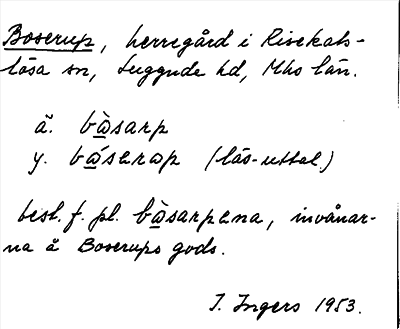 Boserup, herregård i Risekats-
lösa sn, Luggude hd, Mhs län.
ä. bàsarp
y. bása rəp (läs-uttal.)
best. f. pl. bàsarpena, invånar-
na å Boserups gods.
I. Ingers 1953.